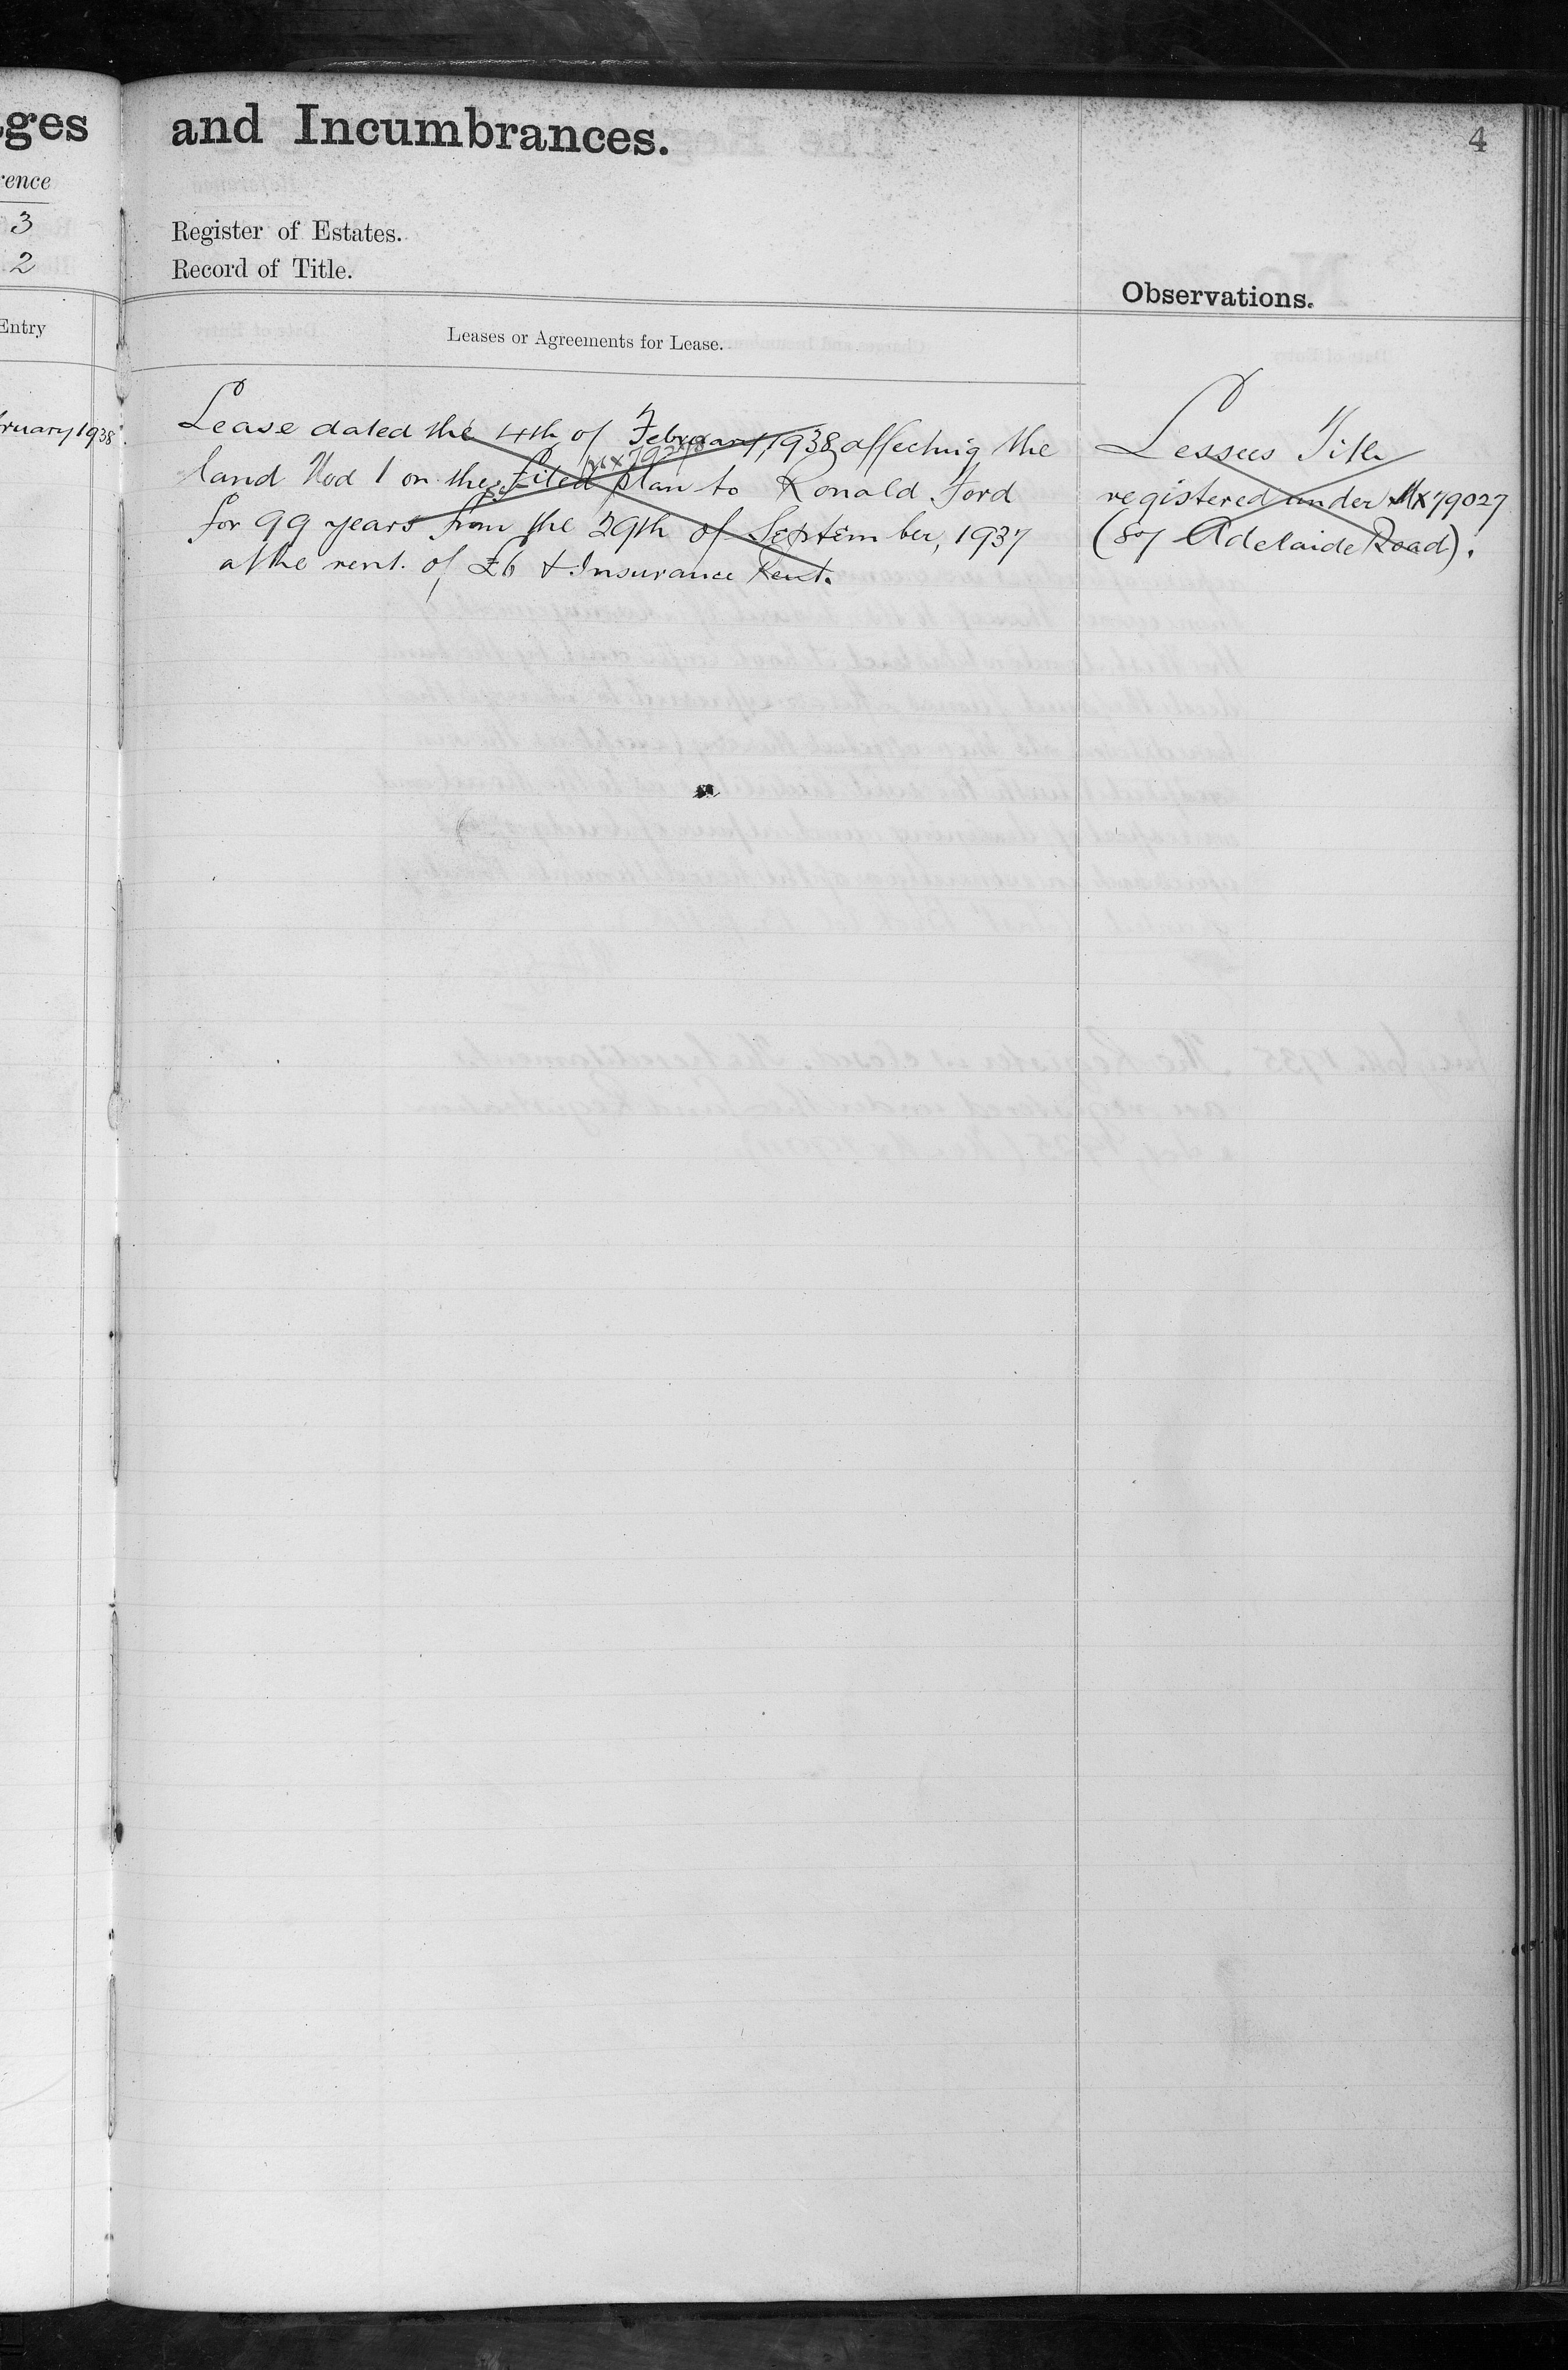 ges
and Incumbrances.
4
rence
3
2
Register of Estates.
Record of Title.
Observations.
Entry
Leases or Agreements for Lease.
ruary 1938.
Lease dated the 4th of February, 1938 affecting the
land Nod 1 on the filed plan to Ronald Ford
for 99 years from the 29th of September, 1937
at the rent of £6 & Insurance Rent.
Lessees Title
registered under Mx79027
(87 Adelaide Road).